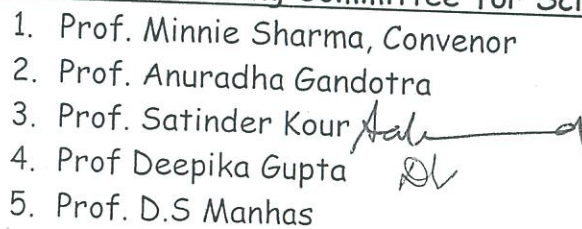 Committee for Sci
1. Prof. Minnie Sharma, Convenor
2. Prof. Anuradha Gandotra
3. Prof. Satinder Kour
4. Prof Deepika Gupta
5. Prof. D.S Manhas